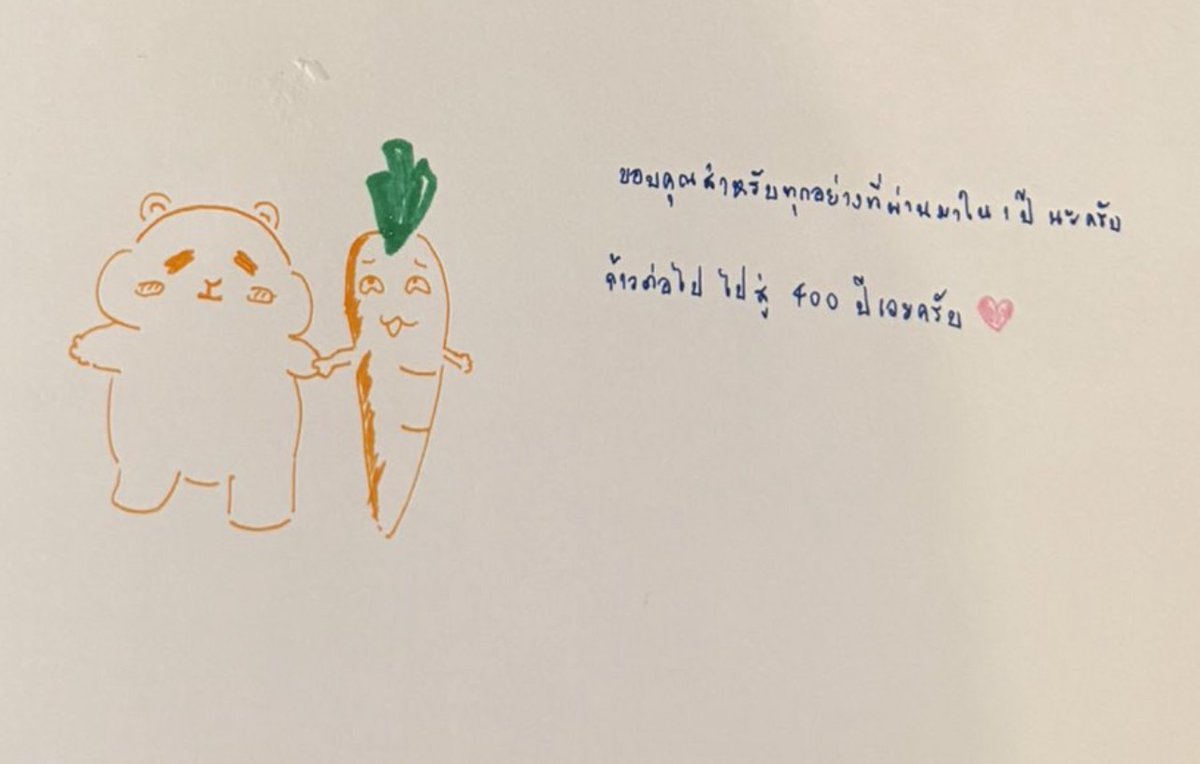 ขอบคุณสำหรับทุกอย่างที่ผ่านมาใน 1 ปี นะครับ
ก้าวต่อไป ไปสู่ 400 ปีเลยครับ